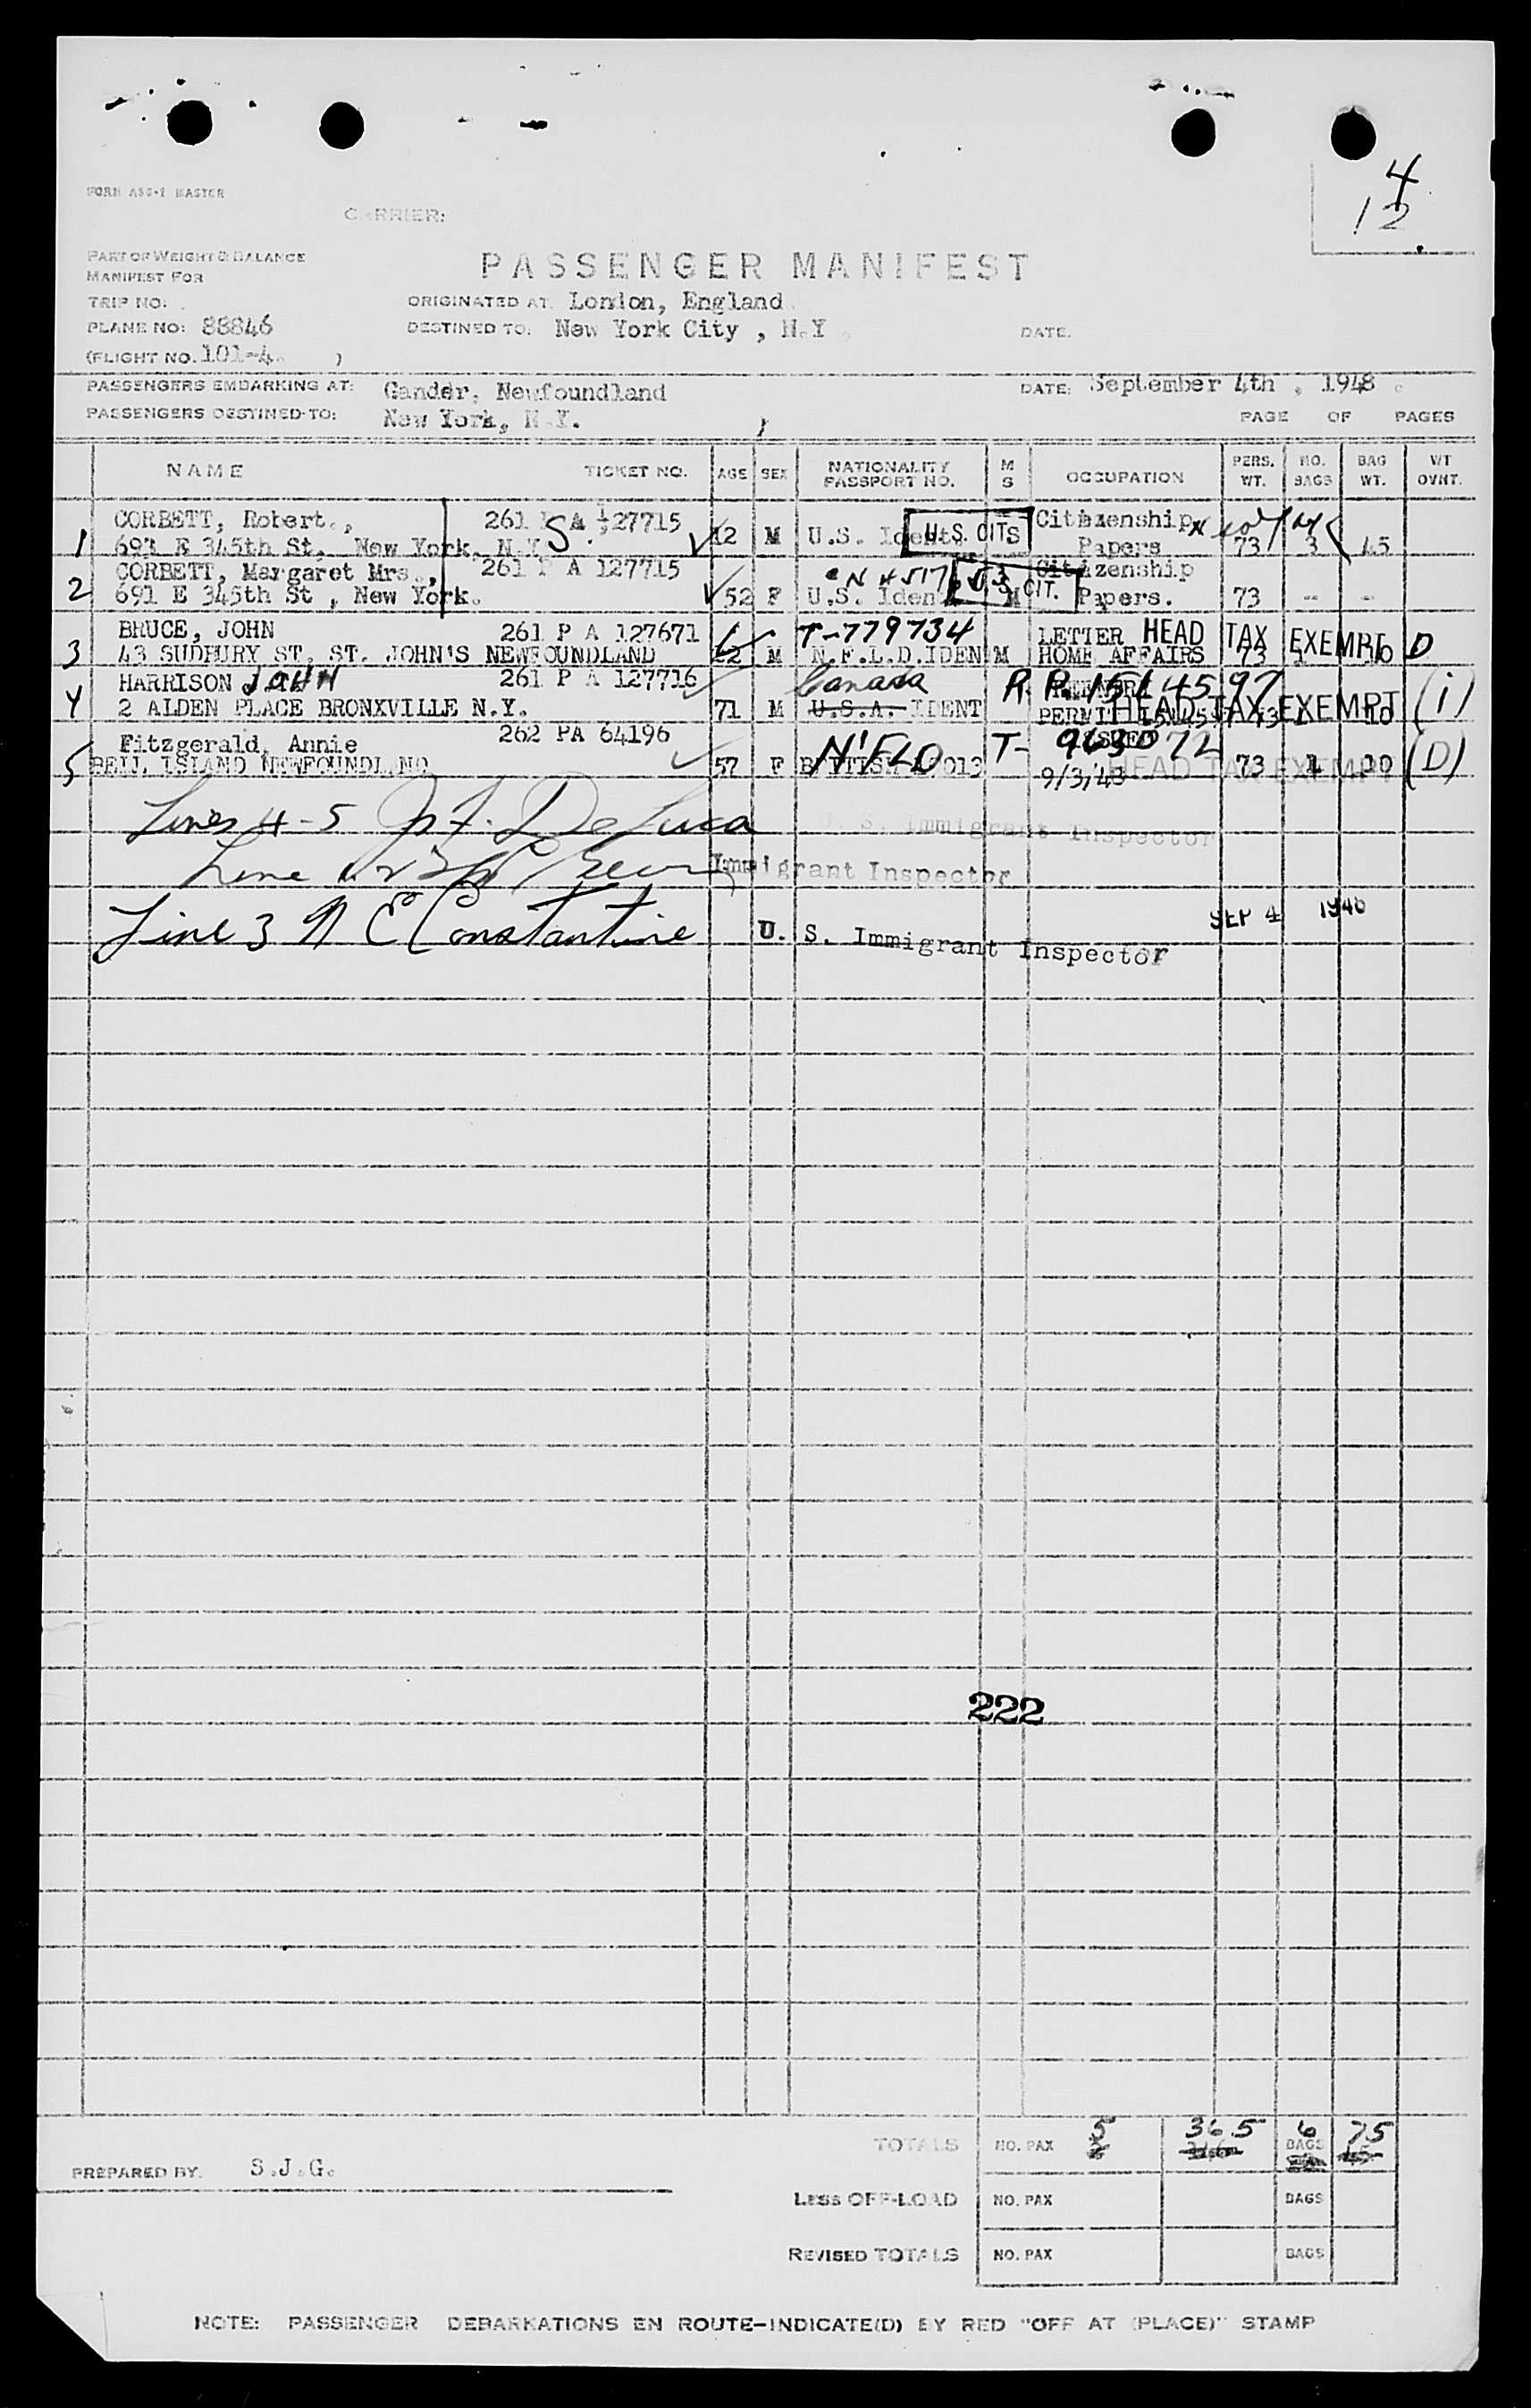 4
12
FORM ASG-1 MASTER
CARRIER:
PART OF WEIGHT & BALANCE
MANIFEST FOR
PASSENGER MANIFEST
TRIP NO:
ORIGINATED AT. London, England
PLANE NO: 88846
DESTINED TO: New York City , N.Y.
DATE.
(FLIGHT NO. 101-4. )
PASSENGERS EMBARKING AT: Gander, Newfoundland
DATE: September 4th , 1948 .
PASSENGERS DESTINED TO: New York, N.Y.
PAGE OF PAGES
NAME TICKET NO. AGE SEX NATIONALITY PASSPORT NO. M S OCCUPATION PERS. WT. NO. BAGS BAG WT. WT OVNT.
CORBETT, Robert., 261 P A 127715 Citizenship
1 691 E 345th St. New York, N.Y. M U.S. Ident U.S. CITS Papers 73 3 45
CORBETT, Margaret Mrs., 261 P A 127715 Citizenship
2 691 E 345th St , New York. 52 F U.S. Iden U.S. CIT. M Papers. 73 -- --
BRUCE, JOHN 261 P A 127671 T-779734 LETTER HEAD TAX EXEMPT D
3 43 SUDBURY ST. ST. JOHN'S NEWFOUNDLAND M N.F.L.D.IDEN M HOME AFFAIRS 73
HARRISON JOHN 261 P A 127716 Canada R.P. 1514597
4 2 ALDEN PLACE BRONXVILLE N.Y. 71 M U.S.A. IDENT PERMIT HEAD TAX EXEMPT 73 10 (i)
Fitzgerald, Annie 262 PA 64196 N'FLD T- ISSUED
5 BELL ISLAND NEWFOUNDLAND 57 F BRITISH 013 9/3/48 HEAD TAX EXEMPT 73 1 10 (D)
Lines 4-5 DeLuca U. S. Immigrant Inspector
Line Immigrant Inspector
Line 3 N E Constantine U. S. Immigrant Inspector SEP 4 1948
222
TOTALS NO. PAX 5 365 6 BAGS 75
PREPARED BY. S.J.G.
LESS OFF-LOAD NO. PAX BAGS
REVISED TOTALS NO. PAX BAGS
NOTE: PASSENGER DEBARKATIONS EN ROUTE-INDICATE(D) BY RED "OFF AT (PLACE)" STAMP